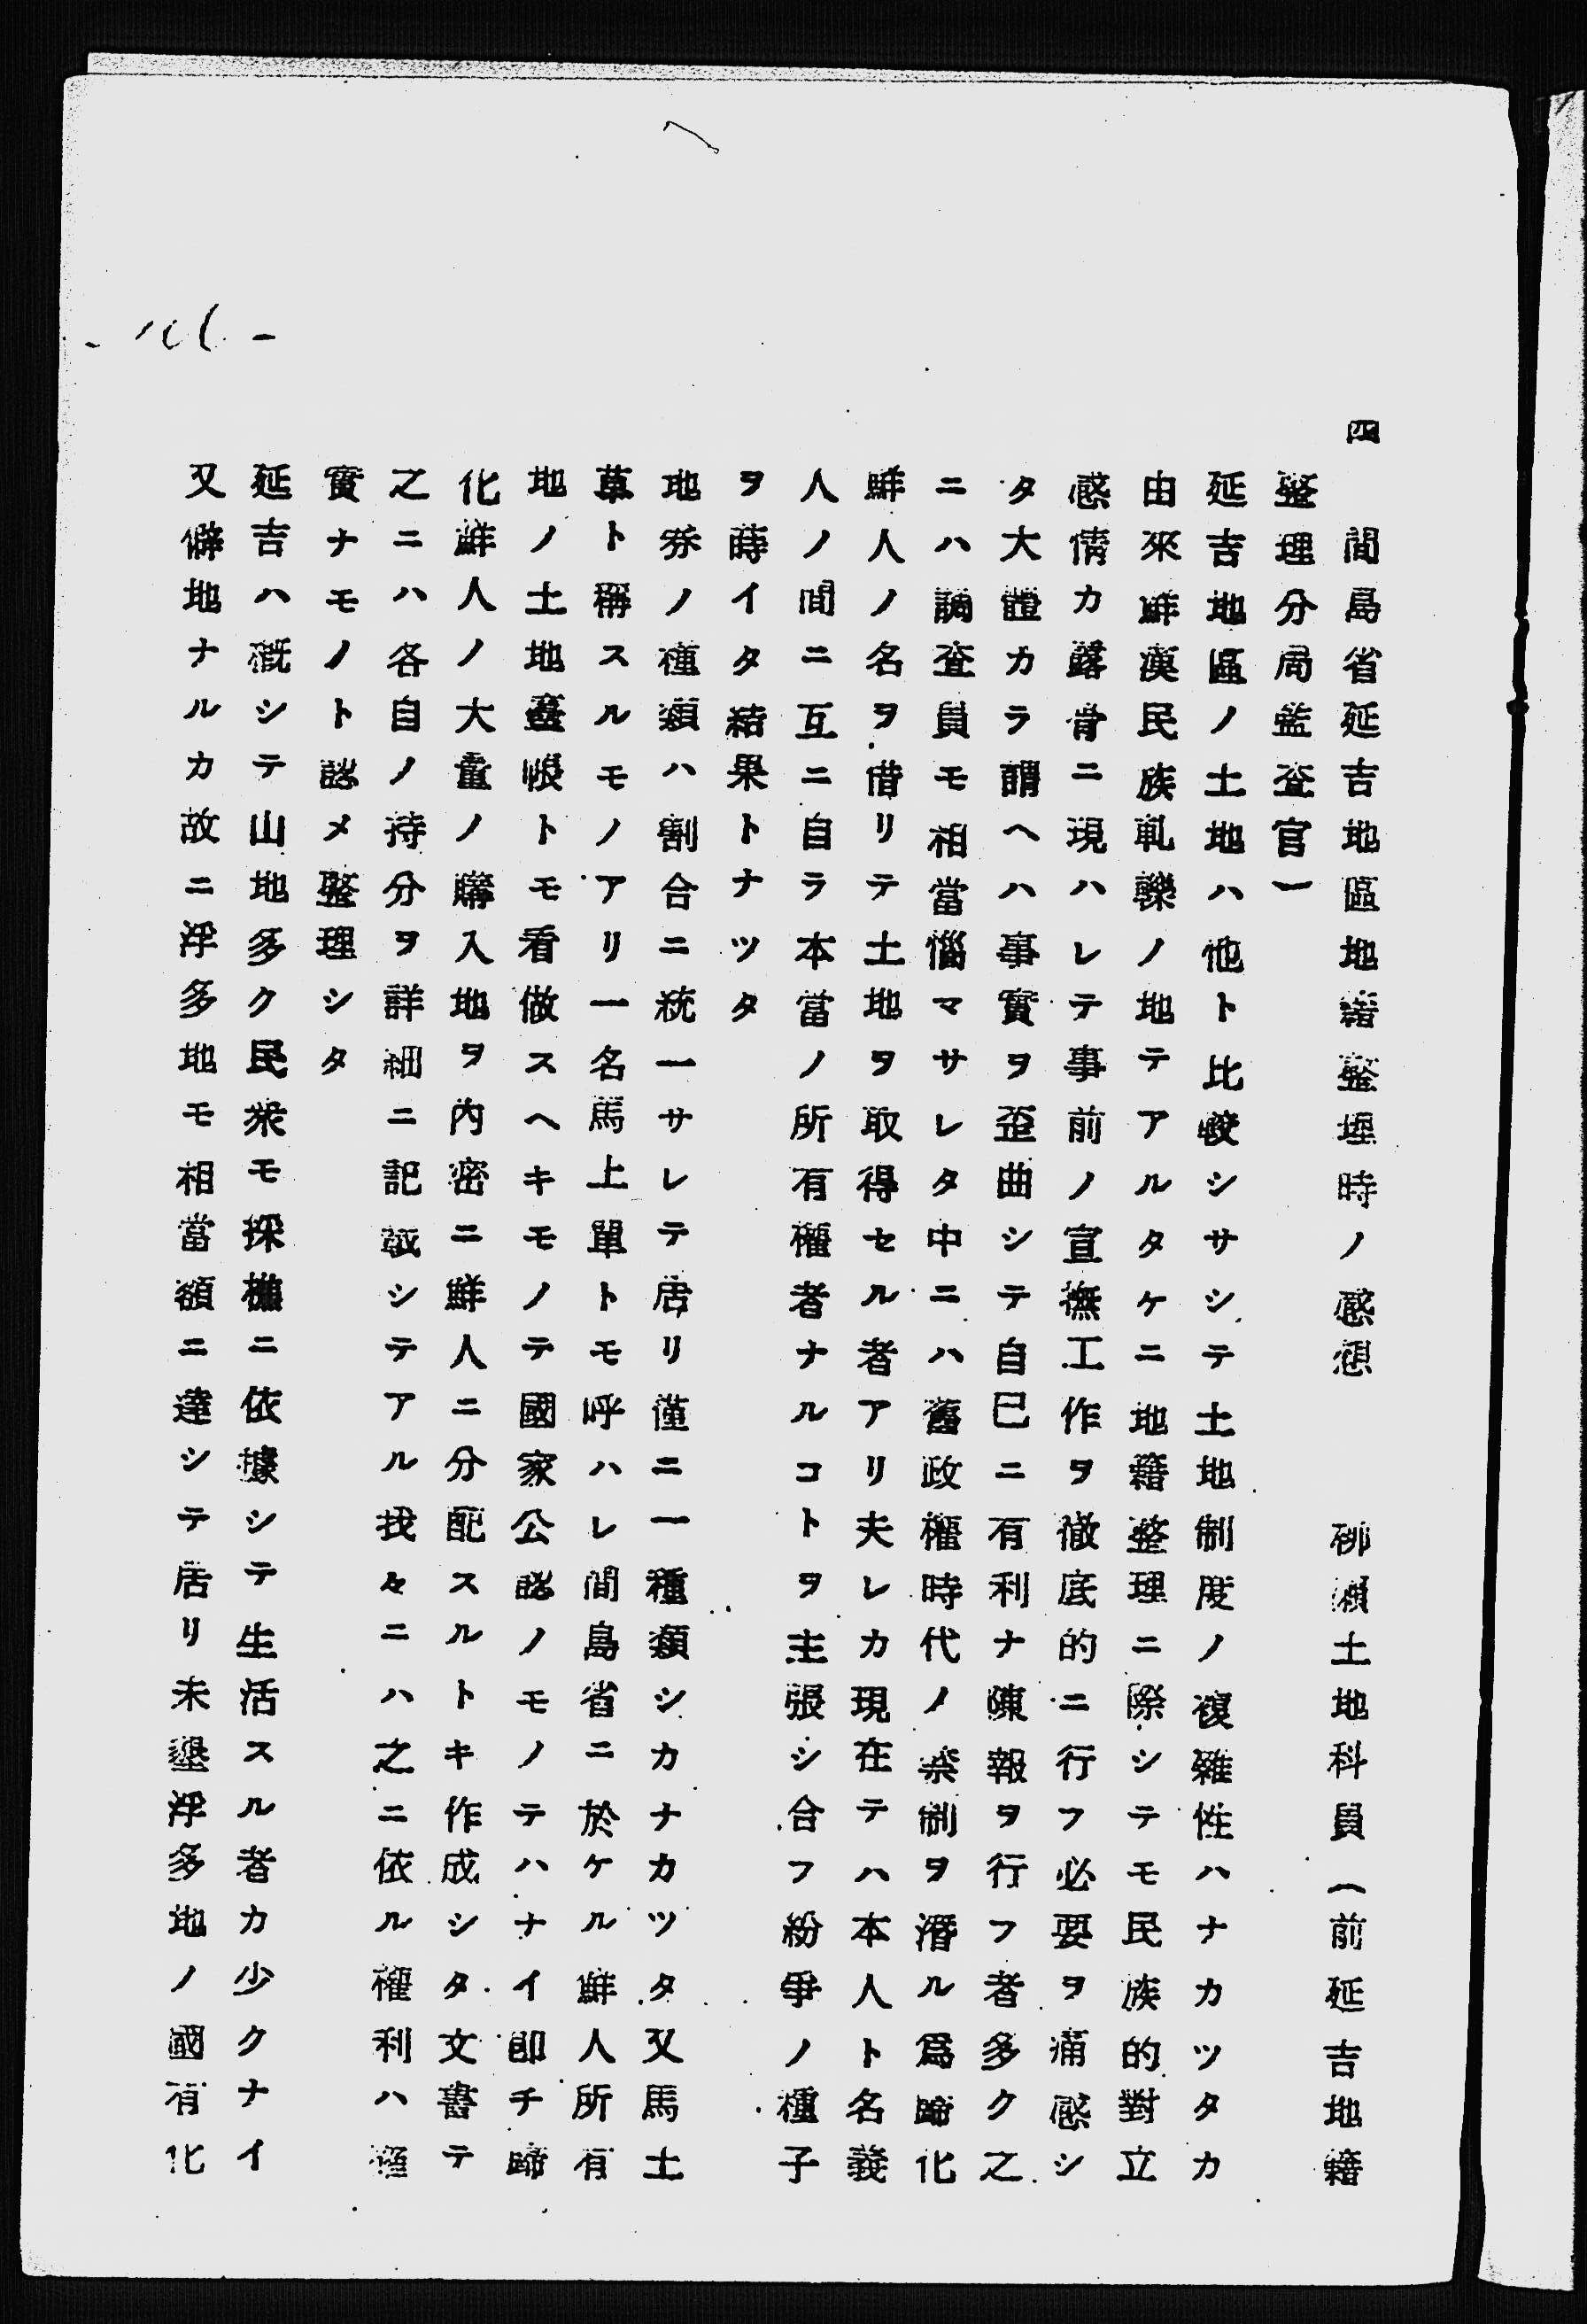 四　間島省延吉地區地籍整理時ノ感想　　柳瀬土地科員（前延吉地籍
整理分局監査官）
延吉地區ノ土地ハ他ト比較シサシテ土地制度ノ複雜性ハナカツタカ
由來鮮漢民族軋轢ノ地テアルタケニ地籍整理ニ際シテモ民族的對立
感情カ露骨ニ現ハレテ事前ノ宣撫工作ヲ徹底的ニ行フ必要ヲ痛感シ
タ大體カラ謂ヘハ事實ヲ歪曲シテ自己ニ有利ナ陳報ヲ行フ者多ク之
ニハ調査員モ相當惱マサレタ中ニハ舊政權時代ノ禁制ヲ潛ル爲歸化
鮮人ノ名ヲ借リテ土地ヲ取得セル者アリ夫レカ現在テハ本人ト名義
人ノ間ニ互ニ自ラ本當ノ所有權者ナルコトヲ主張シ合フ紛爭ノ種子
ヲ蒔イタ結果トナツタ
地券ノ種類ハ割合ニ統一サレテ居リ僅ニ一種類シカナカツタ又馬土
草ト稱スルモノアリ一名馬上單トモ呼ハレ間島省ニ於ケル鮮人所有
地ノ土地臺帳トモ看做スヘキモノテ國家公認ノモノテハナイ卽チ歸
化鮮人ノ大量ノ購入地ヲ內密ニ鮮人ニ分配スルトキ作成シタ文書テ
之ニハ各自ノ持分ヲ詳細ニ記載シテアル我々ニハ之ニ依ル權利ハ確
實ナモノト認メ整理シタ
延吉ハ概シテ山地多ク民衆モ採樵ニ依據シテ生活スル者カ少クナイ
又僻地ナルカ故ニ浮多地モ相當額ニ達シテ居リ未墾浮多地ノ國有化